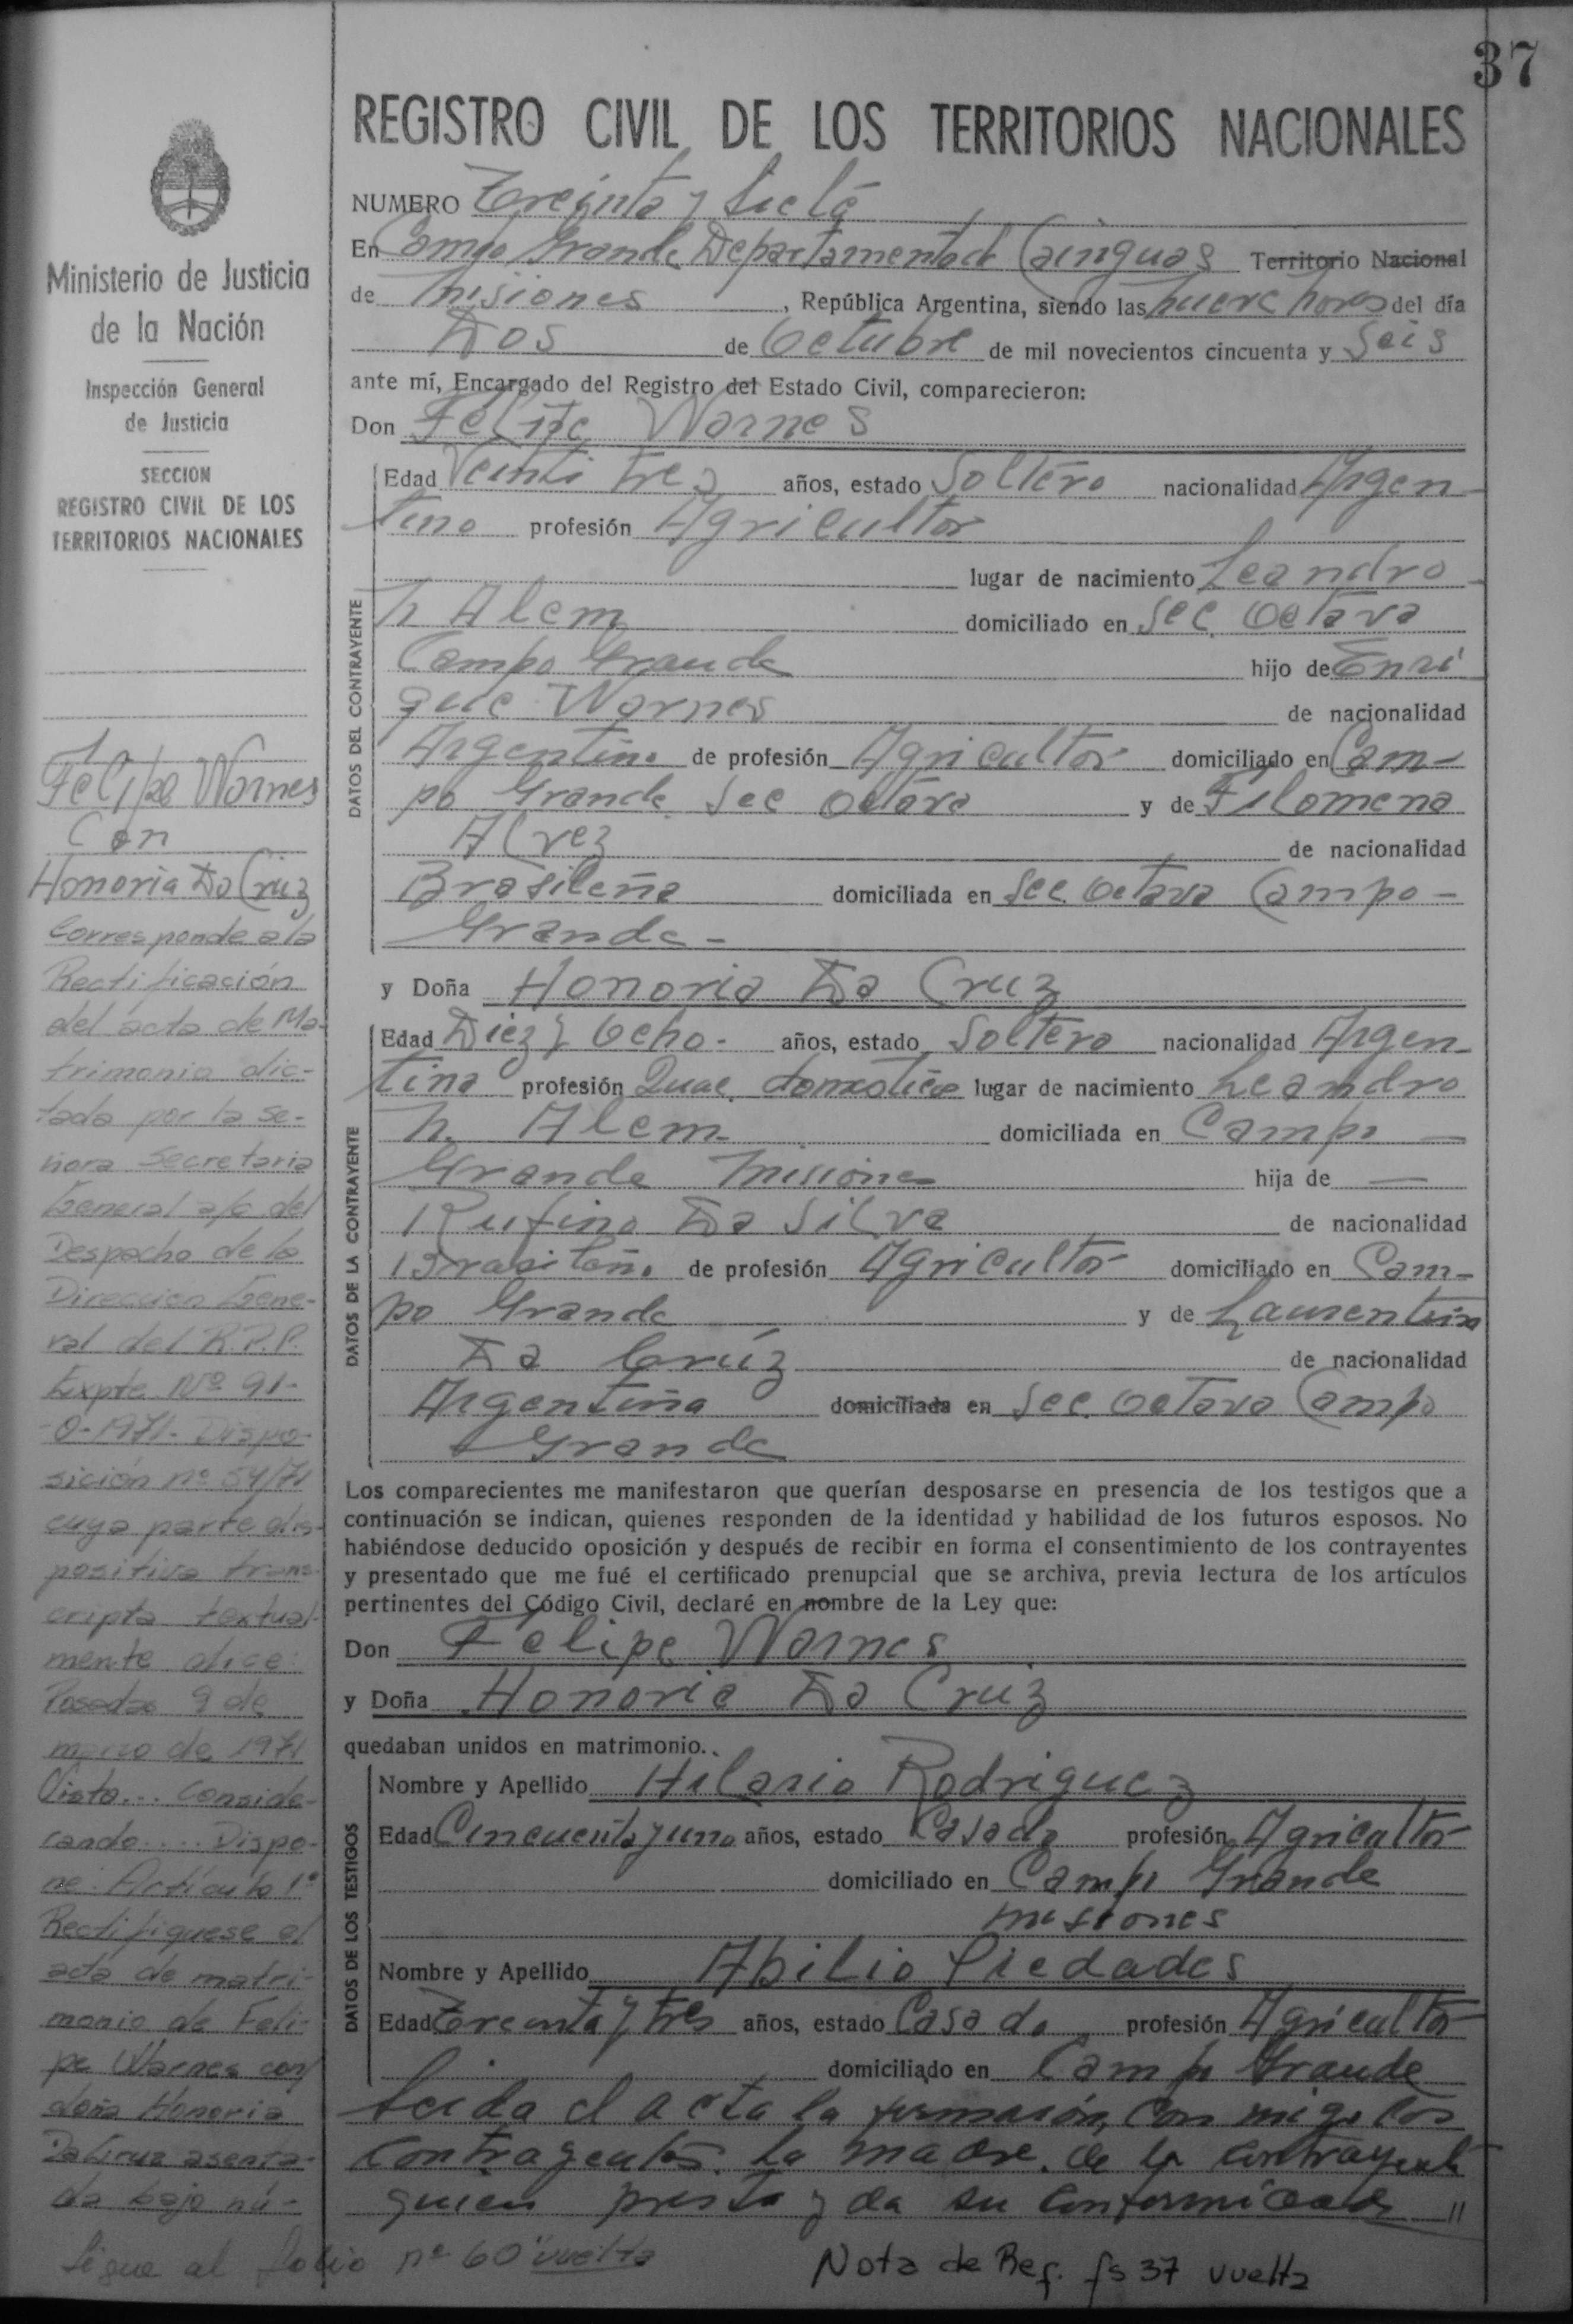 37
REGISTRO CIVIL DE LOS TERRITORIOS NACIONALES
Ministerio de Justicia
de la Nación
Inspección General
de Justicia
SECCION
REGISTRO CIVIL DE LOS
TERRITORIOS NACIONALES
Felipe Warnes
Con
Honoria Da Cruz
Corresponde a la
Rectificación
del acta de Ma-
trimonio dic-
tada por la Se-
ñora Secretaria
General a/c del
Despacho de la
Direccion Gene-
ral del R.P.P.
Expte Nº 91-
-0-1971- Dispo-
sición nº 54/71
cuya parte dis-
positiva trans-
cripta textual-
mente dice:
Posadas 9 de
marzo de 1971
Visto... Conside-
rando.... Dispo-
ne: Artículo 1º
Rectifiquese el
acta de matri-
monio de Feli-
pe Warnes con
doña Honoria
Da Cruz asenta-
da bajo nú-
Sigue al folio nº 60 "vuelta
NUMERO Treinta y siete
En Campo Grande Departamento de Cainguas Territorio Nacional
de Misiones, República Argentina, siendo las nueve horas del día
Dos de Octubre de mil novecientos cincuenta y Seis
ante mí, Encargado del Registro del Estado Civil, comparecieron:
Don Felipe Warnes
DATOS DEL CONTRAYENTE
Edad Veinti trez años, estado Soltero nacionalidad Argen-
tino profesión Agricultor
lugar de nacimiento Leandro
N Alem domiciliado en Sec. Octava
Campo Grande hijo de Enri
que Warnes de nacionalidad
Argentino de profesión Agricultor domiciliado en Cam-
po Grande Sec Octava y de Filomena
Alvez de nacionalidad
Brasileña domiciliada en Sec. Octava Campo-
Grande-
y Doña Honoria Da Cruz
DATOS DE LA CONTRAYENTE
Edad Diez y Ocho- años, estado Soltera nacionalidad Argen-
tina profesión Quac. domesticos lugar de nacimiento Leandro
N. Alem- domiciliada en Campo -
Grande Misiones hija de -
Rufino Da Silva de nacionalidad
Brasileño de profesión Agricultor domiciliado en Cam-
po Grande y de Laurentina
Da Crúz de nacionalidad
Argentina domiciliada en Sec. Octava Campo
Grande
Los comparecientes me manifestaron que querían desposarse en presencia de los testigos que a
continuación se indican, quienes responden de la identidad y habilidad de los futuros esposos. No
habiéndose deducido oposición y después de recibir en forma el consentimiento de los contrayentes
y presentado que me fué el certificado prenupcial que se archiva, previa lectura de los artículos
pertinentes del Código Civil, declaré en nombre de la Ley que:
Don Felipe Warnes
y Doña Honoria Da Cruz
quedaban unidos en matrimonio.
DATOS DE LOS TESTIGOS
Nombre y Apellido Hilario Rodriguez
Edad Cincuenta y uno años, estado Casado profesión Agricultor
domiciliado en Campo Grande
misiones
Nombre y Apellido Abilio Piedades
Edad Treinta y tres años, estado Casado profesión Agricultor
domiciliado en Campo Grande
Leida el acta la firmaron, con migo los
contrayentes, la madre de la contrayente
quien presta y da su conformidad "
Nota de Ref. fs 37 vuelta